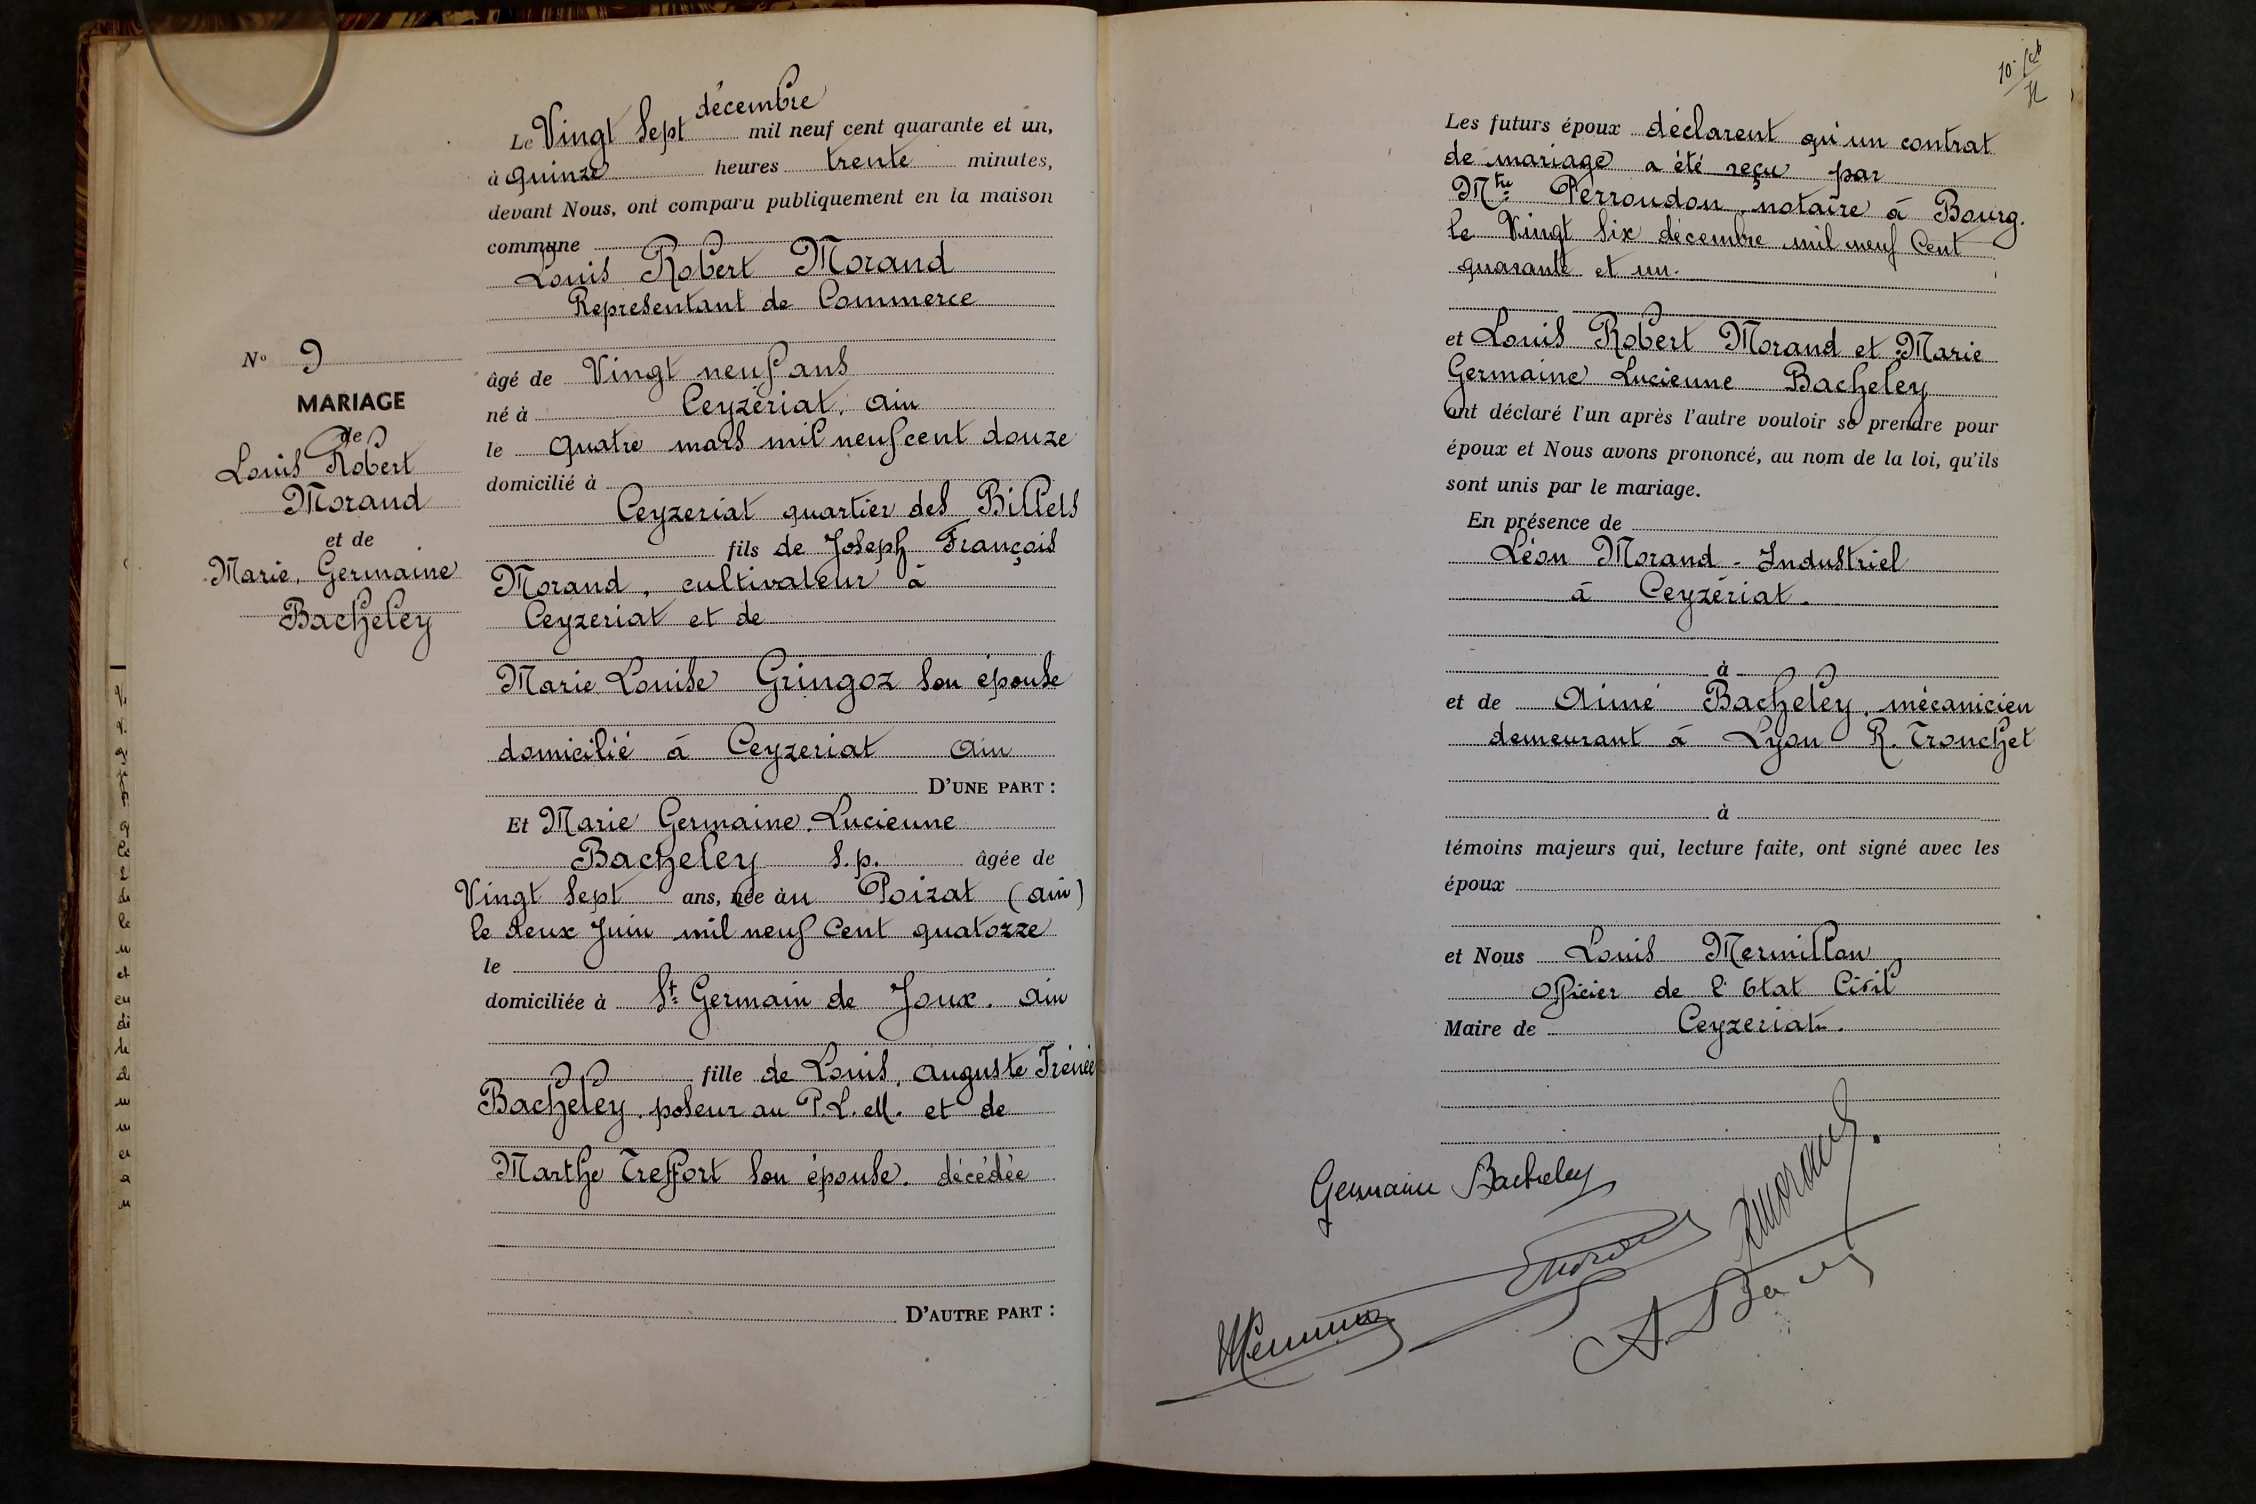 N° 9
MARIAGE
de
Louis Robert
Morand
et de
Marie, Germaine
Bacheley
décembre
Le Vingt Sept mil neuf cent quarante et un,
à quinze heures trente minutes,
devant Nous, ont comparu publiquement en la maison
commune
Louis Robert Morand
Représentant de Commerce
âgé de Vingt neuf ans
né à Ceyzériat, Ain
le quatre mars mil neuf cent douze
domicilié à
Ceyzeriat quartier des Billets
fils de Joseph François
Morand, cultivateur à
Ceyzeriat et de
Marie Louise Gringoz son épouse
domicilié à Ceyzeriat Ain
D'UNE PART :
Et Marie Germaine. Lucienne
Bacheley s.p. âgée de
Vingt Sept ans, née au Poizat (Ain)
le deux Juin mil neuf Cent quatorze
le
domiciliée à St Germain de Joux. Ain
fille de Louis, Auguste Irénée
Bacheley. poseur au P.L.M. et de
Marthe Treffort son épouse. décédée
D'AUTRE PART :
Les futurs époux déclarent qu'un contrat
de mariage a été reçu par
Mtre Perroudon, notaire à Bourg.
le Vingt Six décembre mil neuf Cent
quarante et un.
et Louis Robert Morand et Marie
Germaine Lucienne Bacheley
ont déclaré l'un après l'autre vouloir se prendre pour
époux et Nous avons prononcé, au nom de la loi, qu'ils
sont unis par le mariage.
En présence de
Léon Morand - Industriel
à Ceyzériat.
à
et de Aimé Bacheley, mécanicien
demeurant à Lyon R. Tronchet
à
témoins majeurs qui, lecture faite, ont signé avec les
époux
et Nous Louis Mermillon
Officier de l'Etat Civil
Maire de Ceyzeriat.
Germaine Bacheley